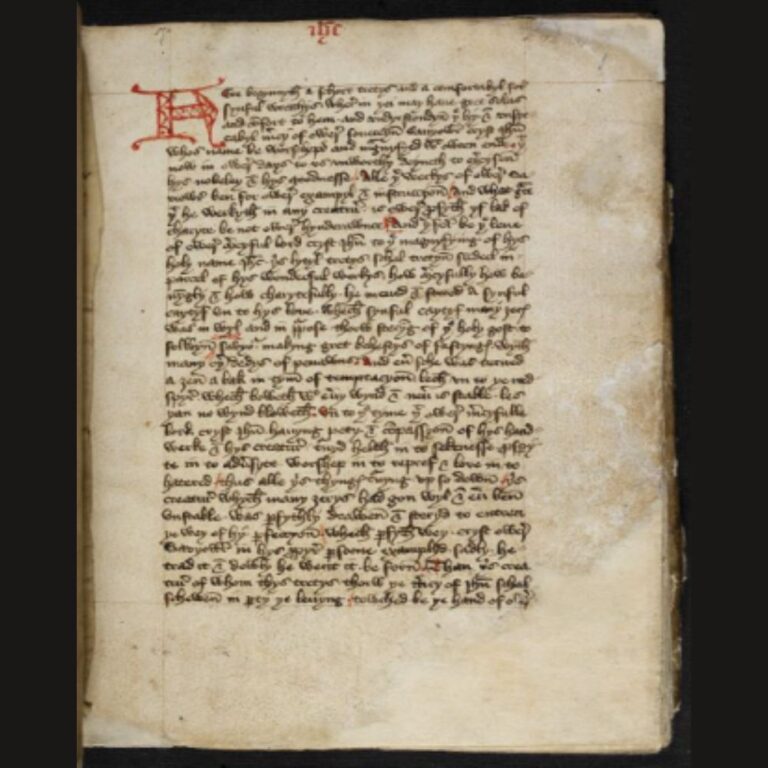 ihc
Here begynnyth a schort tretys and a comfortabyl for
synful wrecchys, wher in þei may haue gret solas
and cōfort to hem and vndyrstondyn þe hy & vnspe-
cabyl mcy of ower souereyn sauyowr cryst ihu
whos name be worschepd and magnyfyed wt owten ende þt
now in ower days to vs vnworthy deyneth to exercysen
hys nobeley & hys goodnesse. Alle þe werkys of ower sa-
uiowr ben for ower exampyl & instruccyon and what gce
þt he werkyth in any creatur is ower pfyth yf lak of
charyte be not ower hynderawnce. And þerfor be þe leue
of ower mcyful lord cryst ihu to þe magnyfying of hys
holy name ihu þis lytyl tretys schal tretyn sumdeel in
parcel of hys wonderful werkys how mcyfully how be-
nyngly & how charytefully he meued & stered a synful
caytyf vn to hys loue. Whech synful caytyf many ȝerys
was in wyl and in ppose thorw steryng of þe holy gost to
folwyn sauyowr makyng gret behestys of fastyngys wyth
many oþ dedys of penawns and eū sche was turned
a ȝen a bak in tym of temptacyon lech vn to þe reed
spyr whech boweth wt eūy wynd & neū is stable les
þan no wynd bloweth, Vn to þe tyme þt ower mcyfulle
lord cryst ihu hauyng pety & cōpassyon of hys hand-
werke & hys creatur turnyd helth in to sekenesse pspy-
te in to aduersyte worshep in to repref & love in to
hatered, thus alle þis thyngys turnyng vp so down þis
creatur whych many ȝerys had gon wyl & eū ben
vnstable was pfythly drawen & steryd to entren
þe wey of hy pfeccyon whech pfyth wey cryst ower
sauyowr in hys ppyr psoone examplyd sadly he
trad it & dewly he went it be forn. Than þis crea-
tur of whom thys tretys thorw þe mcy of ihu schal
schewen in pty þe leuyng towched be þe hand of owr